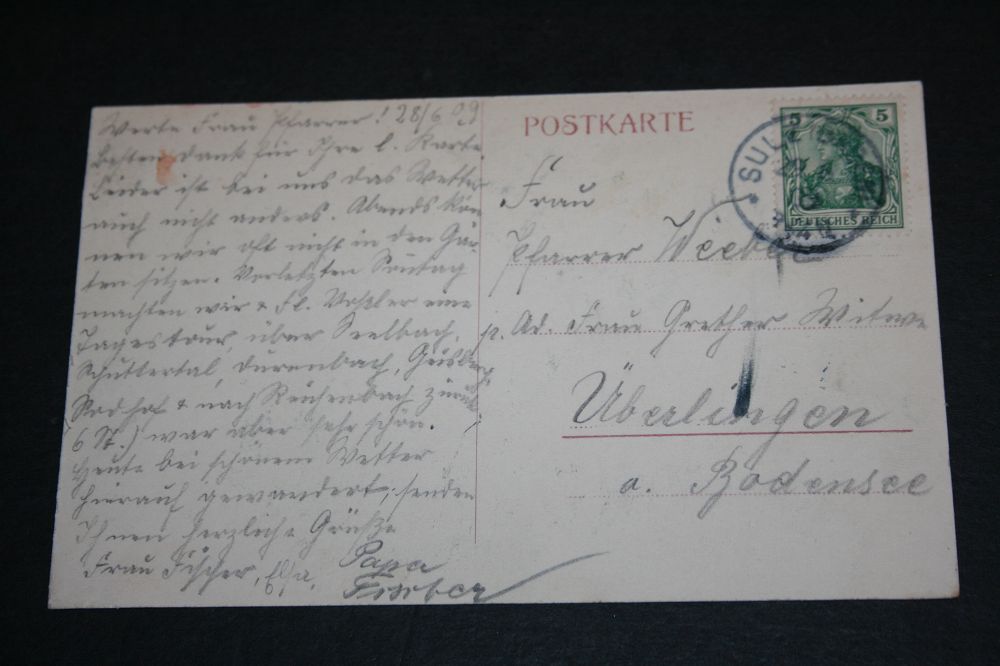 Werte Frau Pfarrer! 28/6 09
Besten Dank für Ihre l. Karte
Leider ist bei uns das Wetter
auch nicht anders. Abends kön-
nen wir oft nicht in den Gär-
ten sitzen. Vorletzten Sontag
machten wir & Fl. eine
Tagestour, über Seelbach,
Schuttertal, Dürenbach,
& nach Reichenbach zurück
6 St.) war aber sehr schön.
Heute bei schönem Wetter
hierauf gewandert, senden
Ihnen herzliche Grüße
Frau Fischer, Elsa, Papa
Fischer
POSTKARTE
5 5
DEUTSCHES REICH
SUL
Frau
Pfarrer Weeber
p. Ad. Frau Grether Witwe
Überlingen
a. Bodensee